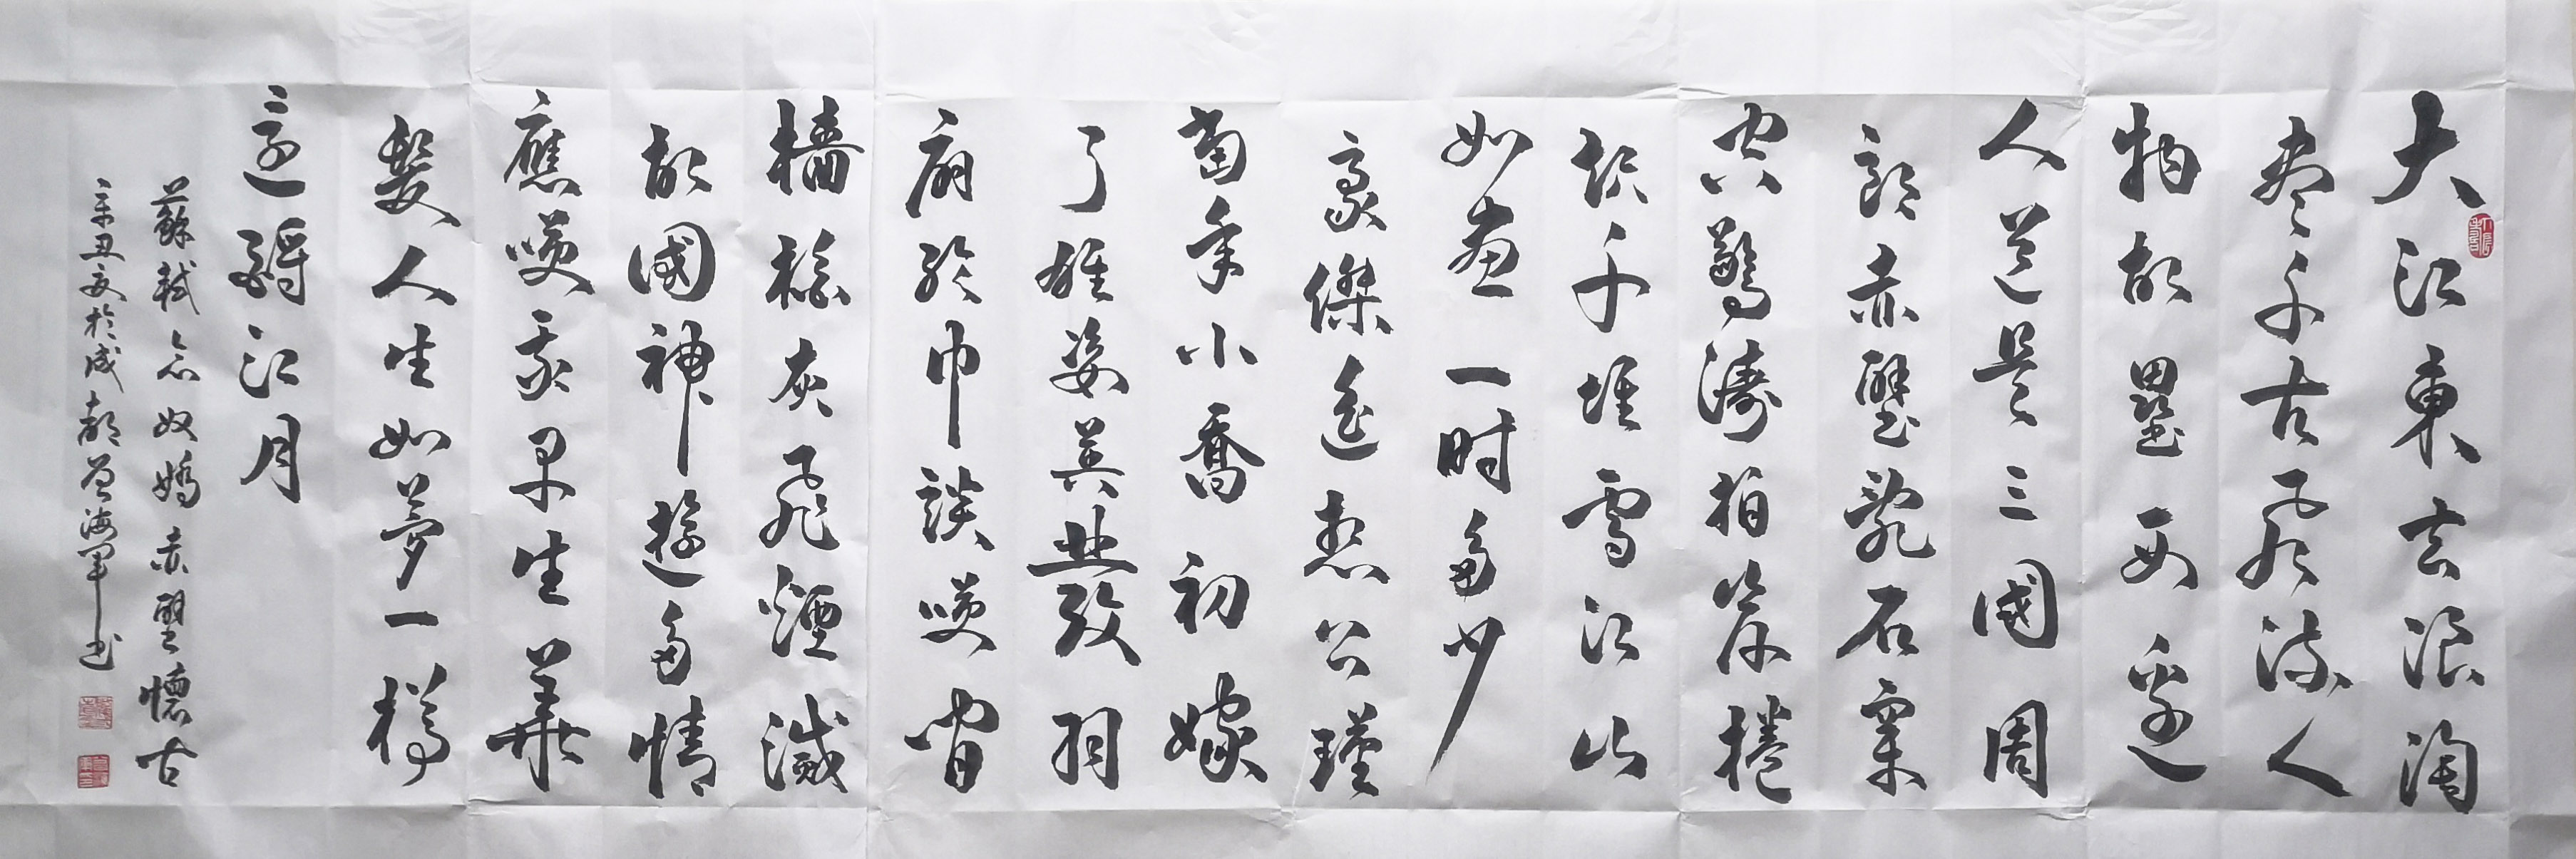 大江東去浪淘
盡千古風流人
物故壘西邊
人道是三國周
郎赤壁亂石穿
空驚濤拍岸捲
起千堆雪江山
如畫一时多少
豪傑遙想公瑾
當年小喬初嫁
了雄姿英發羽
扇綸巾談咲間
檣櫓灰飛煙滅
故國神遊多情
應咲我早生華
髮人生如夢一樽
還酹江月
蘇軾念奴嬌赤壁懷古
辛丑夏於成都曾海軍书